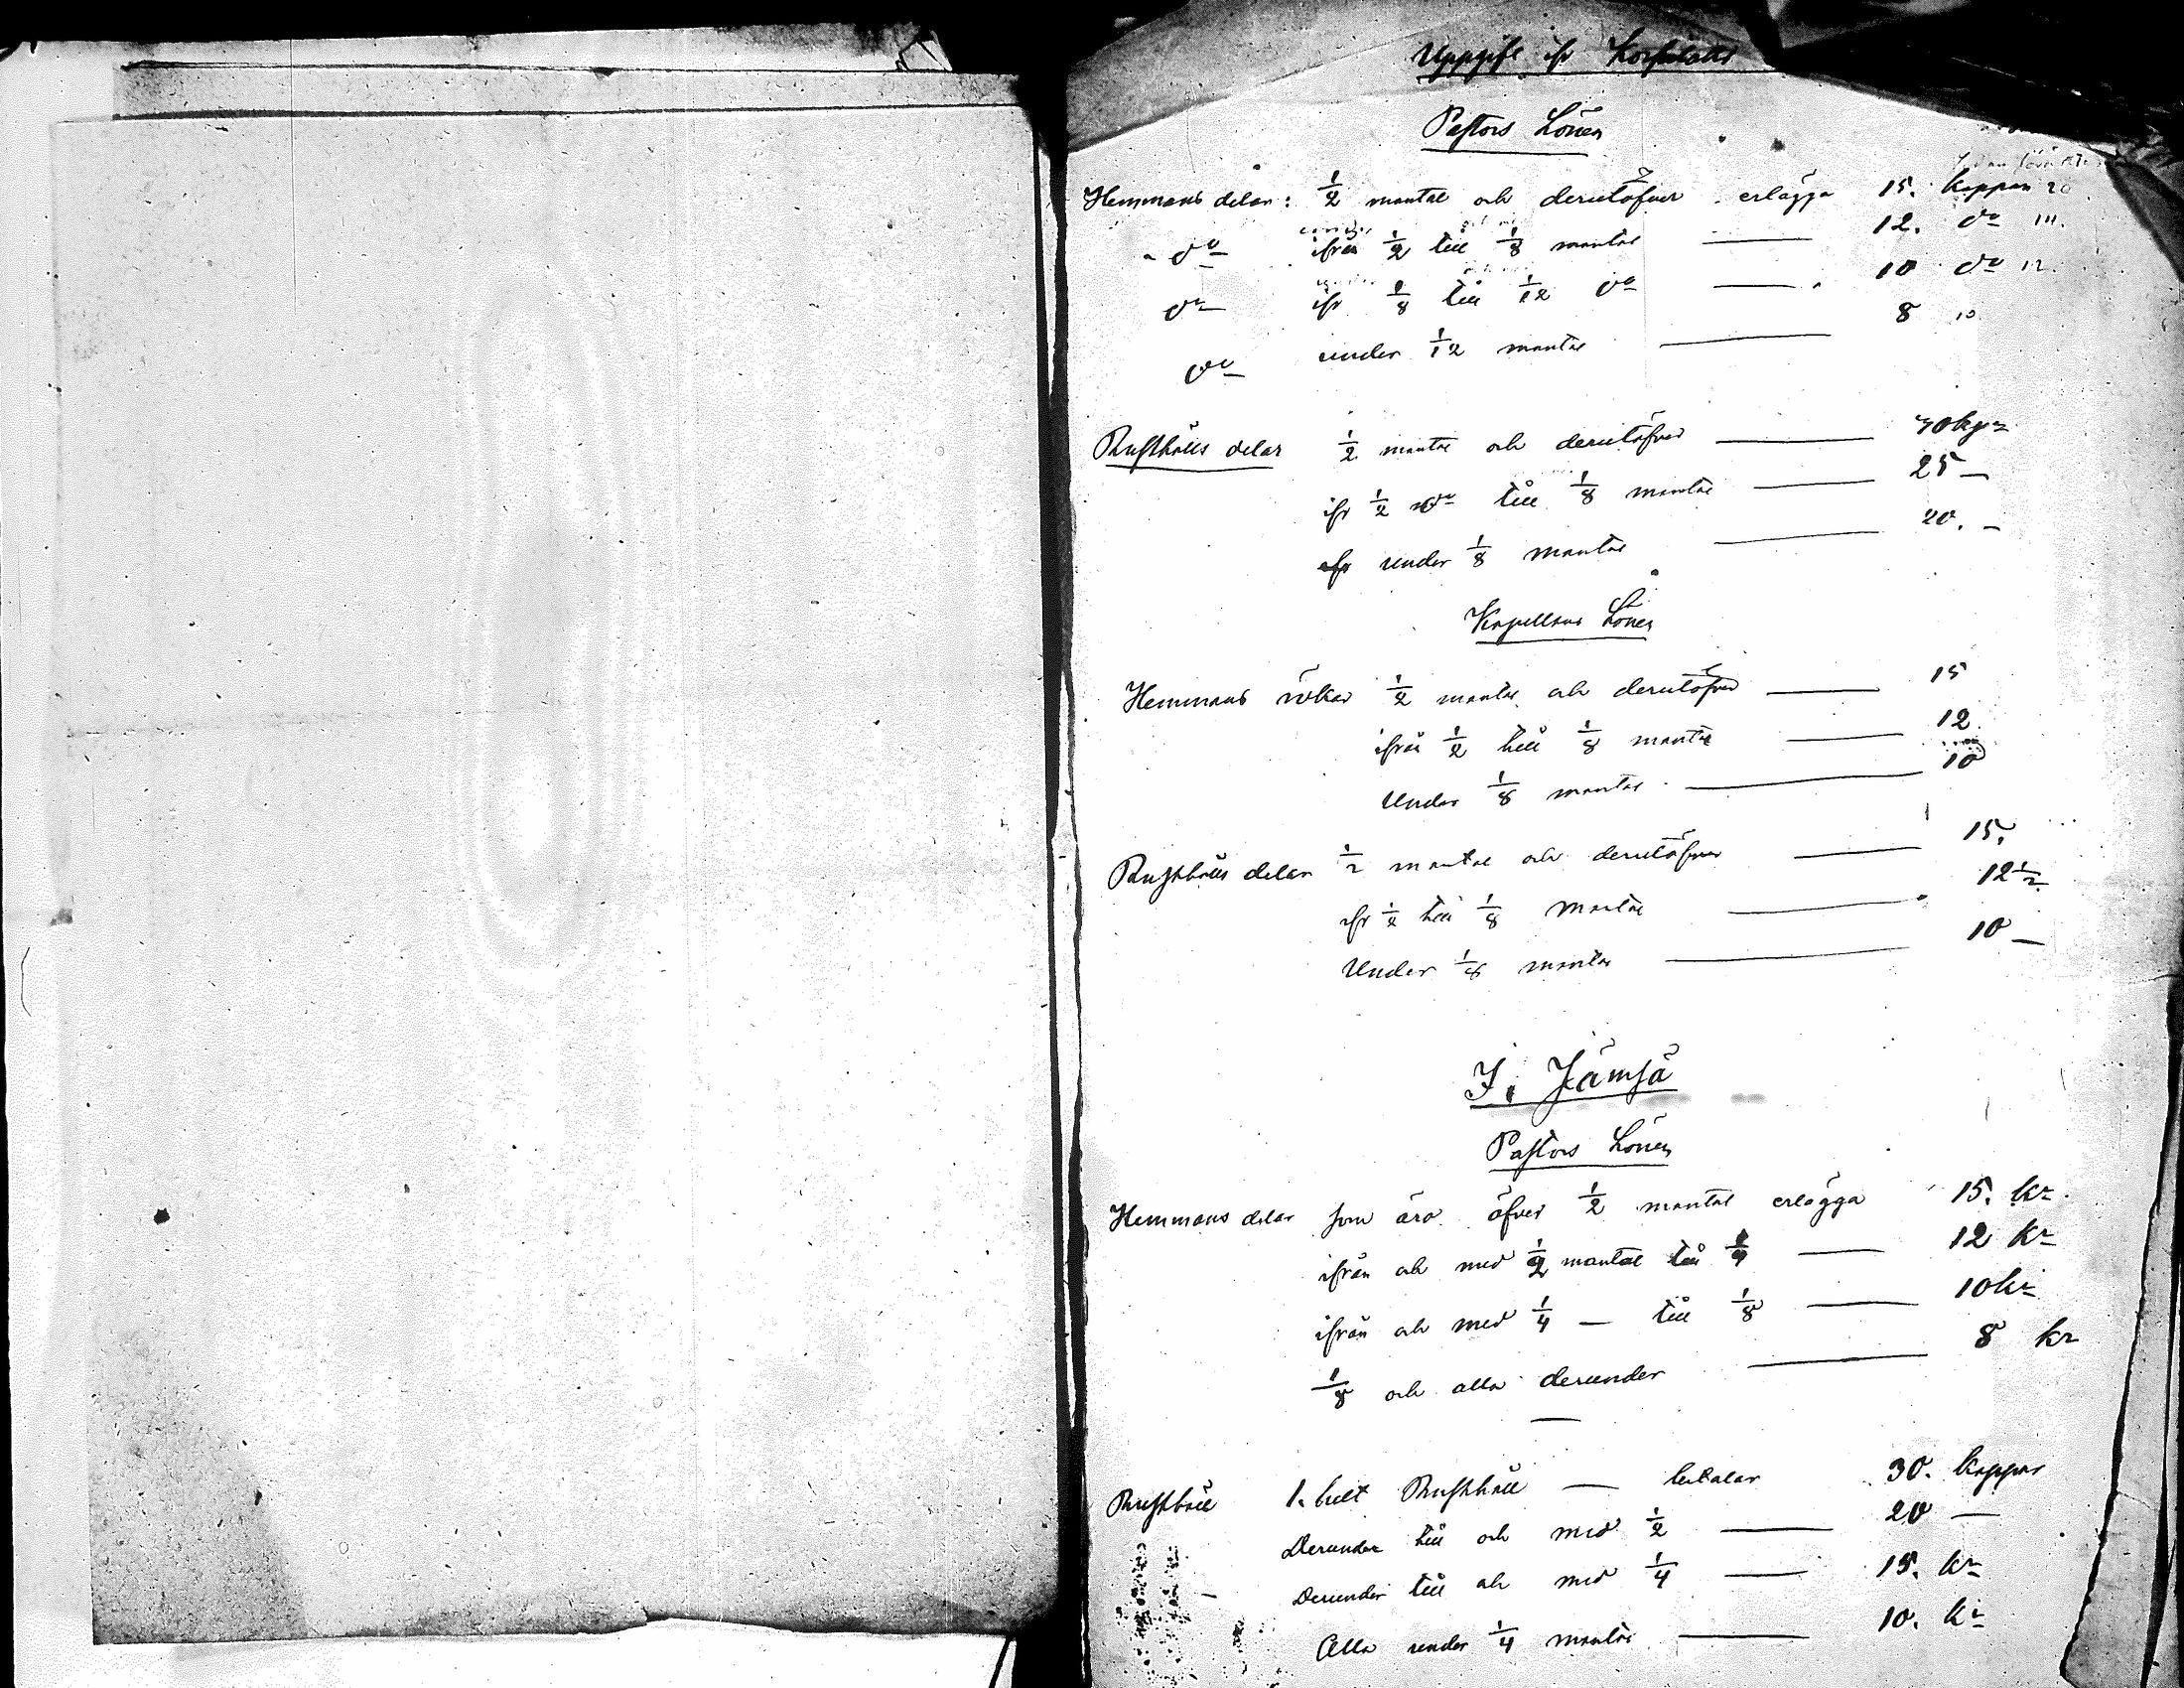 Uppgift ifr Korpilaks
Pastors Löner
Hemmans delar: 1/2 mantal och derutöfver erlägga 15. kappar 20
do ifrån 1/2 till 1/8 mantal — 12. do
do ifr 1/8 till 1/12 do — 10 do 12.
do under 1/12 mantal — 8 10
Rusthålls delar 1/2 mantal och derutöfver —
ifr 1/2 do till 1/8 mantal — 25 —
under 1/8 mantal — 20. —
Kapellans Löner
Hemmans 1/2 mantal och derutöfver — 15
ifrån 1/2 till 1/8 mantal — 12
Under 1/8 mantal — 10
Rusthålls delar 1/2 mantal och derutöfver — 15.
ifr 1/2 till 1/8 mantal — 12 1/2
Under 1/8 mantal — 10 —
I. Jämsä
Pastors Löner
Hemmans delar som äro öfver 1/2 mantal erlägga 15. kr
ifrån och med 1/2 mantal till 1/4 — 12 kr
ifrån och med 1/4 — till 1/8 — 10 kr
1/8 och alla derunder — 8 kr
Rusthåll 1. helt Rusthåll — betalar 30. kappar
Derunder till och med 1/2 — 20 —
Derunder till och med 1/4 — 15. kr
Alla under 1/4 mantal — 10. kr